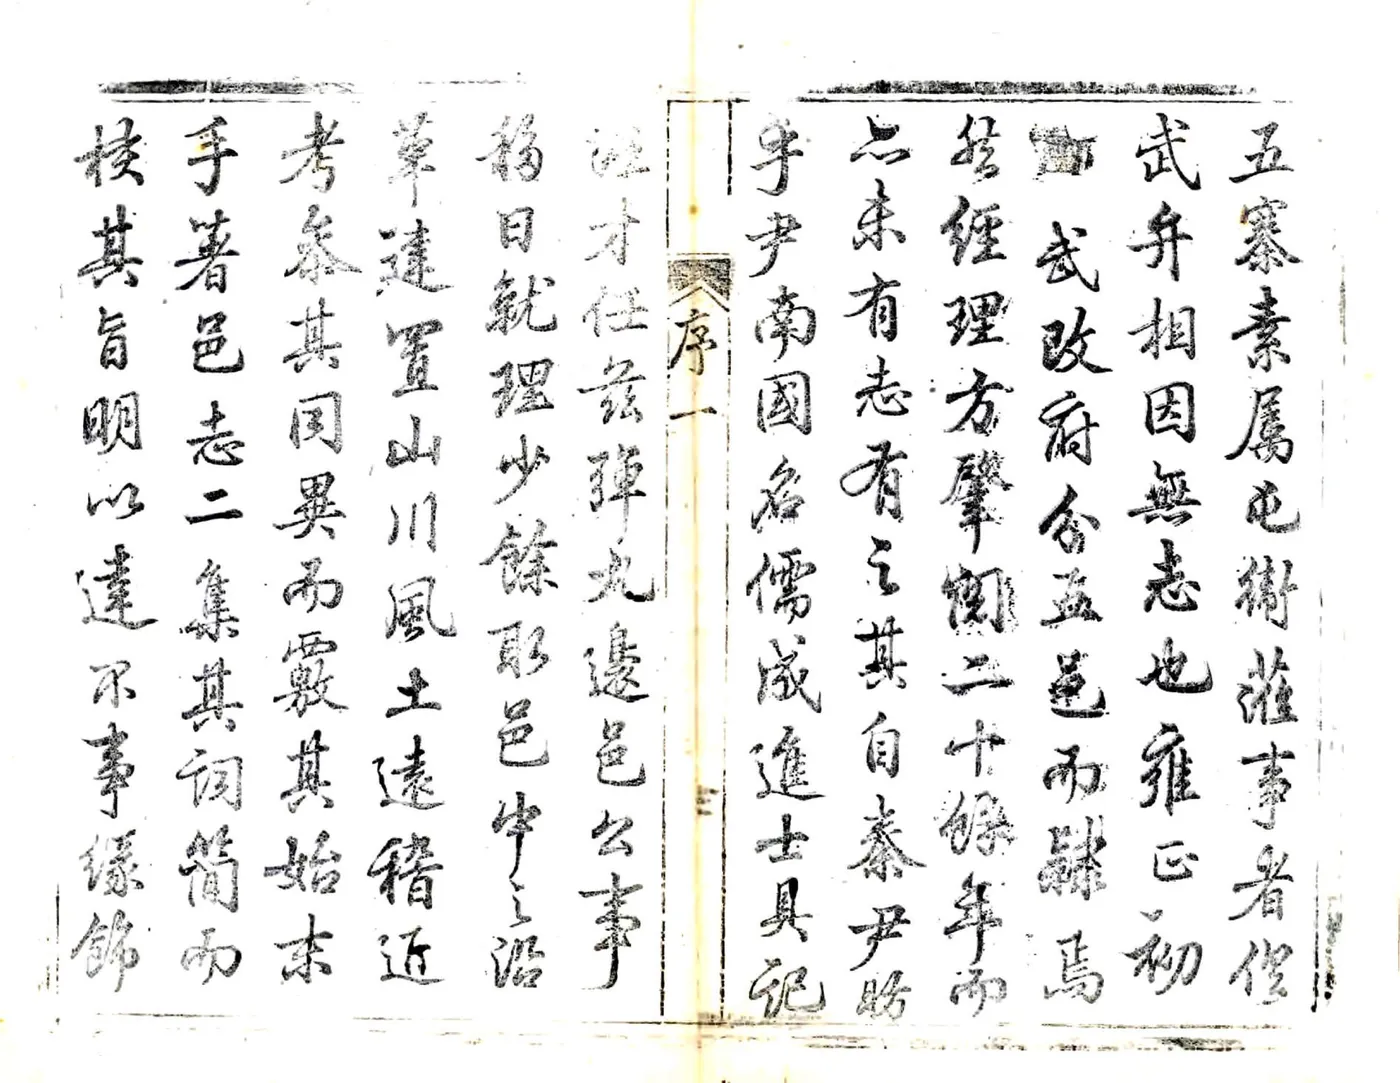 五寨素屬屯衛蒞事者俱
武弁相因無志也雍正初
武改府分五邑而隸焉
然經理方肇閱二十餘年而
亦未有志有之其自秦尹昉
乎尹南國名儒成進士具記
注才任茲彈丸邊邑公事
移日就理少餘取邑中之沿
革建置山川風土遠稽近
考參其同異而覈其始末
手著邑志二集其詞簡而
核其旨明以達不事緣飾
序一